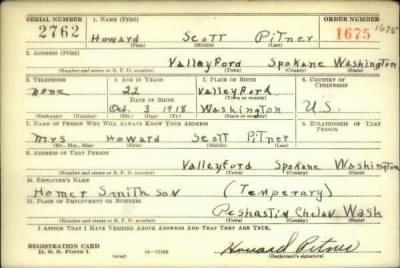 SERIAL NUMBER 1. NAME (Print) ORDER NUMBER
2762 Howard Scott Pitner 1675 1675
(First) (Middle) (Last)
2. ADDRESS (Print)
Valleyford Spokane Washington
(Number and street or R. F. D. number) (Town) (County) (State)
3. TELEPHONE 4. AGE IN YEARS 5. PLACE OF BIRTH 6. COUNTRY OF CITIZENSHIP
none 22 Valleyford
DATE OF BIRTH (Town or county)
Oct. 3 1918 Washington U.S.
(Exchange) (Number) (Mo.) (Day) (Yr.) (State or country)
7. NAME OF PERSON WHO WILL ALWAYS KNOW YOUR ADDRESS 8. RELATIONSHIP OF THAT PERSON
Mrs Howard Scott Pitner
(Mr., Mrs., Miss) (First) (Middle) (Last)
9. ADDRESS OF THAT PERSON
Valleyford Spokane Washington
(Number and street or R. F. D. number) (Town) (County) (State)
10. EMPLOYER'S NAME
Homer Smith son (Temperary)
11. PLACE OF EMPLOYMENT OR BUSINESS
Peshastin Chelan Wash
(Number and street or R. F. D. number) (Town) (County) (State)
I AFFIRM THAT I HAVE VERIFIED ABOVE ANSWERS AND THAT THEY ARE TRUE.
REGISTRATION CARD
D. S. S. Form 1 Howard Pitner
(Registrant's signature)